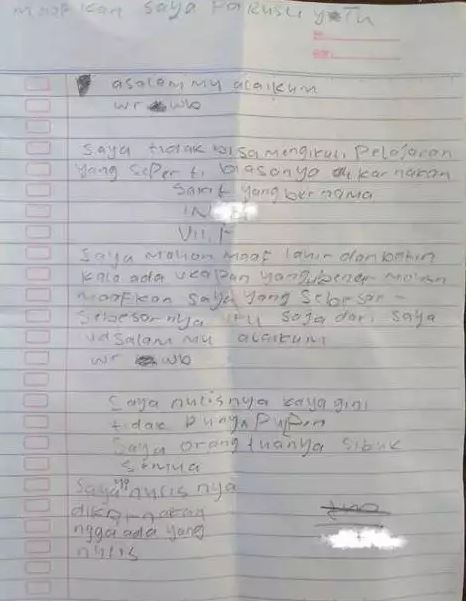 maafkan saya Pak
asalam mu alaikum
wr wb
saya tidak bisa mengikuti Pelajaran
yang seperti biasanya di karnakan
sakit yang bernama
IN
VII, F
saya mohon maaf lahir dan batin
kalo ada ucapan yang mohon
maafkan saya yang sebesar -
sebesarnya itu saja dari saya
salam mu alaikum
wr wb
saya nulisnya kaya gini
tidak punya
saya orang tuanya sibuk
semua
saya nulis nya
dikarnakan
ngga ada yang
nulis